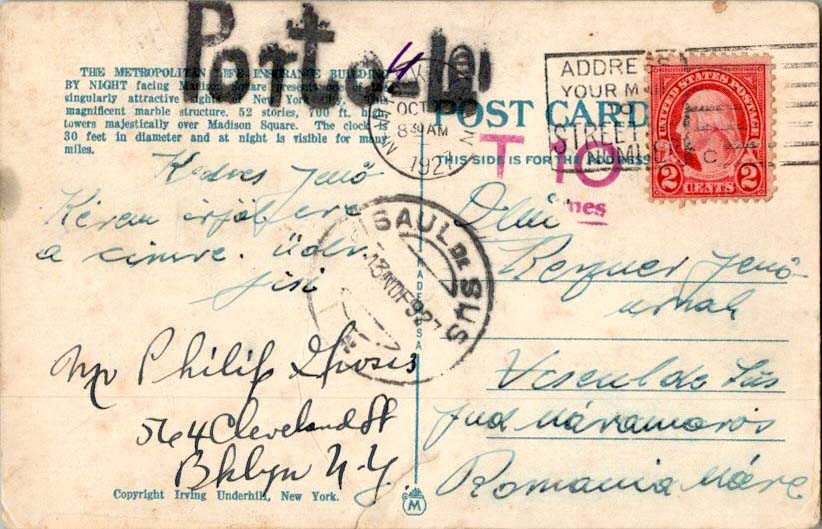 Porto
THE METROPOLITAN LIFE INSURANCE BUILDING
BY NIGHT facing Madison Square presents one of the
singularly attractive sights of New York City. This
magnificent marble structure. 52 stories, 700 ft. high
towers majestically over Madison Square. The clock is
30 feet in diameter and at night is visible for many
miles.
Kedves Jenő
Kérem írjál erre
a címre. Üdv.
Mr Philip
564 Cleveland St
Bklyn N.Y.
Copyright Irving Underhill, New York.
OCT
8 30 AM
1927
POST CARD
THIS SIDE IS FOR THE ADDRESS
T 10
ADDRESS
YOUR MAIL
TO
STREET AND
NUMBER
UNITED STATES POSTAGE
2 CENTS 2
SAUL DE SUS
13 NOE 927
MADE IN USA
Dlui
Jenő
urnak
Viseul de Sus
Jud Máramaros
Romania Mare
M